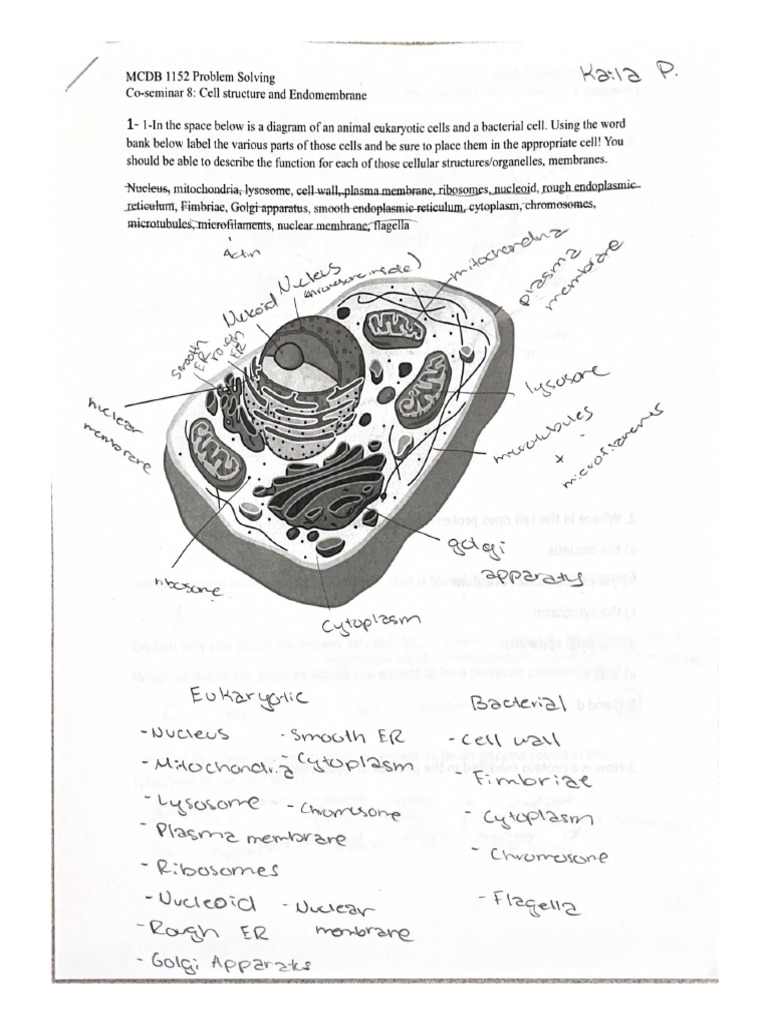 MCDB 1152 Problem Solving
Kaila P.
Co-seminar 8: Cell structure and Endomembrane
1- 1-In the space below is a diagram of an animal eukaryotic cells and a bacterial cell. Using the word
bank below label the various parts of those cells and be sure to place them in the appropriate cell! You
should be able to describe the function for each of those cellular structures/organelles, membranes.
Nucleus, mitochondria, lysosome, cell wall, plasma membrane, ribosomes, nucleoid, rough endoplasmic
reticulum, Fimbriae, Golgi apparatus, smooth endoplasmic reticulum, cytoplasm, chromosomes,
microtubules, microfilaments, nuclear membrane, flagella
Actin
Nucleus
(chromosome inside)
mitochondria
plasma
membrane
Nucleoid
rough
ER
smooth
ER
nuclear
membrane
lysosome
microtubules
+
microfilaments
golgi
apparatus
ribosome
cytoplasm
2. Where in the cell does protein
a) the nucleus
c) the cytoplasm
Eukaryotic
Bacterial
- Nucleus - Smooth ER - Cell wall
- Mitochondria - Cytoplasm - Fimbriae
- Lysosome - Chromosome - Cytoplasm
- Plasma membrane - Chromosome
- Ribosomes
- Nucleoid - Nuclear - Flagella
- Rough ER membrane
- Golgi Apparatus